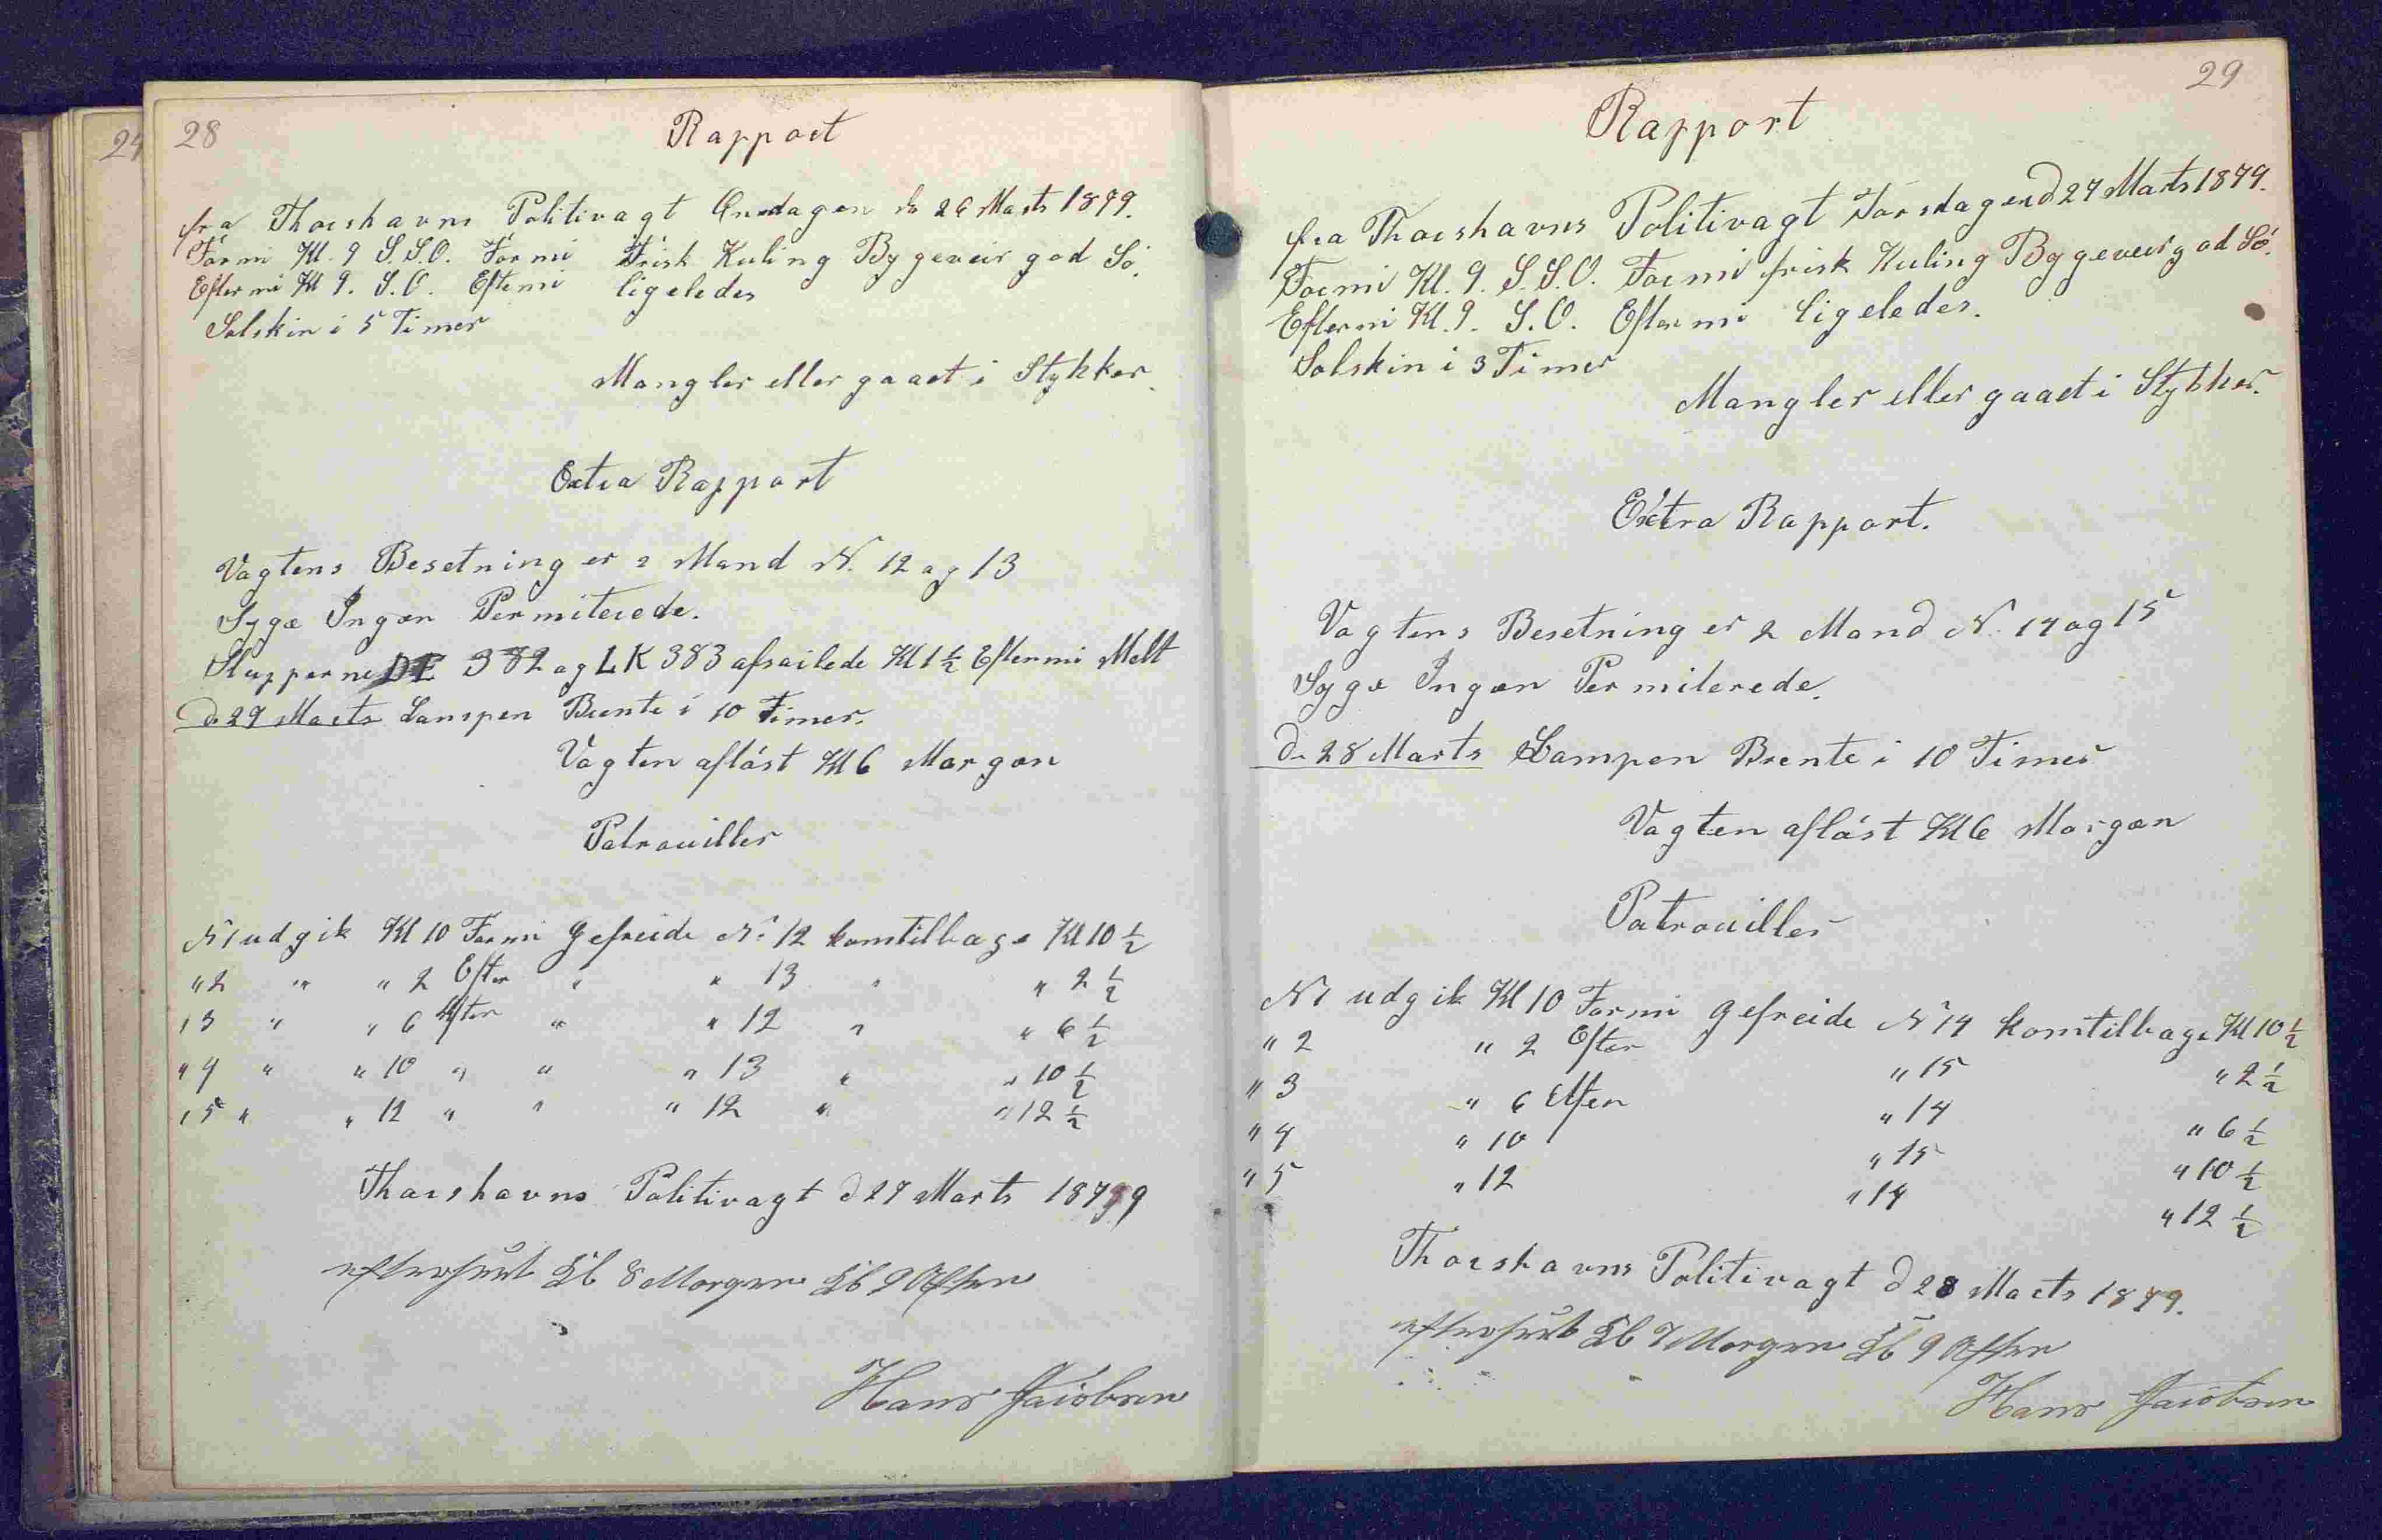 24
28
Rapport
fra Thorshavns Politivagt Onsdagen d. 26 Marts 1879.
Formi Kl. 9 S.S.O. Formi Frisk Kuling Bygeveir god Sö.
Eftermi Kl 9. S.O. Eftemi ligeledes
Solskin i 5 Timer
Mangler eller gaaet i Stykker.
Extra Rapport
Vagtens Besetning er 2 Mand N. 12 og 13
Syge Ingen Permiterede.
Slupperne DE 382 og LK 383 afsailede Kl 1½ Eftermi
d. 27 Marts Lampen Brente i 10 Timer.
Vagten aflöst Kl 6 Morgen
Patrouiller
N 1 udgik Kl 10 Formi gefreide N: 12 komtilbage Kl 10 ½
" 2 " " 2 Efter " " 13 " " 2 ½
" 3 " " 6 Aften " " 12 " " 6 ½
" 4 " " 10 " " " 13 " " 10 ½
" 5 " " 12 " " " 12 " " 12 ½
Thorshavns Politivagt d 27 Marts 1879
efterseet Kl 8 Morgen Kl 9 Aften
Hans Jacobsen
29
Rapport
fra Thorshavns Politivagt Torsdagen d 27 Marts 1879.
Formi Kl. 9. S.S.O. Formi frisk Kuling Bygeveir god Sö.
Eftermi Kl. 9. S.O. Eftermi ligeledes.
Solskin i 3 Timer
Mangler eller gaaet i Stykker.
Extra Rapport.
Vagtens Besetning er 2 Mand N. 14 og 15
Syge Ingen Permiterede.
d. 28 Marts Lampen Brente i 10 Timer
Vagten aflöst Kl 6 Morgen
Patrouiller
N 1 udgik Kl 10 Formi gefreide N 14 komtilbage Kl 10 ½
" 2 " 2 Efter " 15 " 2 ½
" 3 " 6 Aften " 14 " 6 ½
" 4 " 10 " 15 " 10 ½
" 5 " 12 " 14 " 12 ½
Thorshavns Politivagt d 28 Marts 1879.
efterseet Kl 7 Morgen Kl 9 Aften
Hans Jacobsen